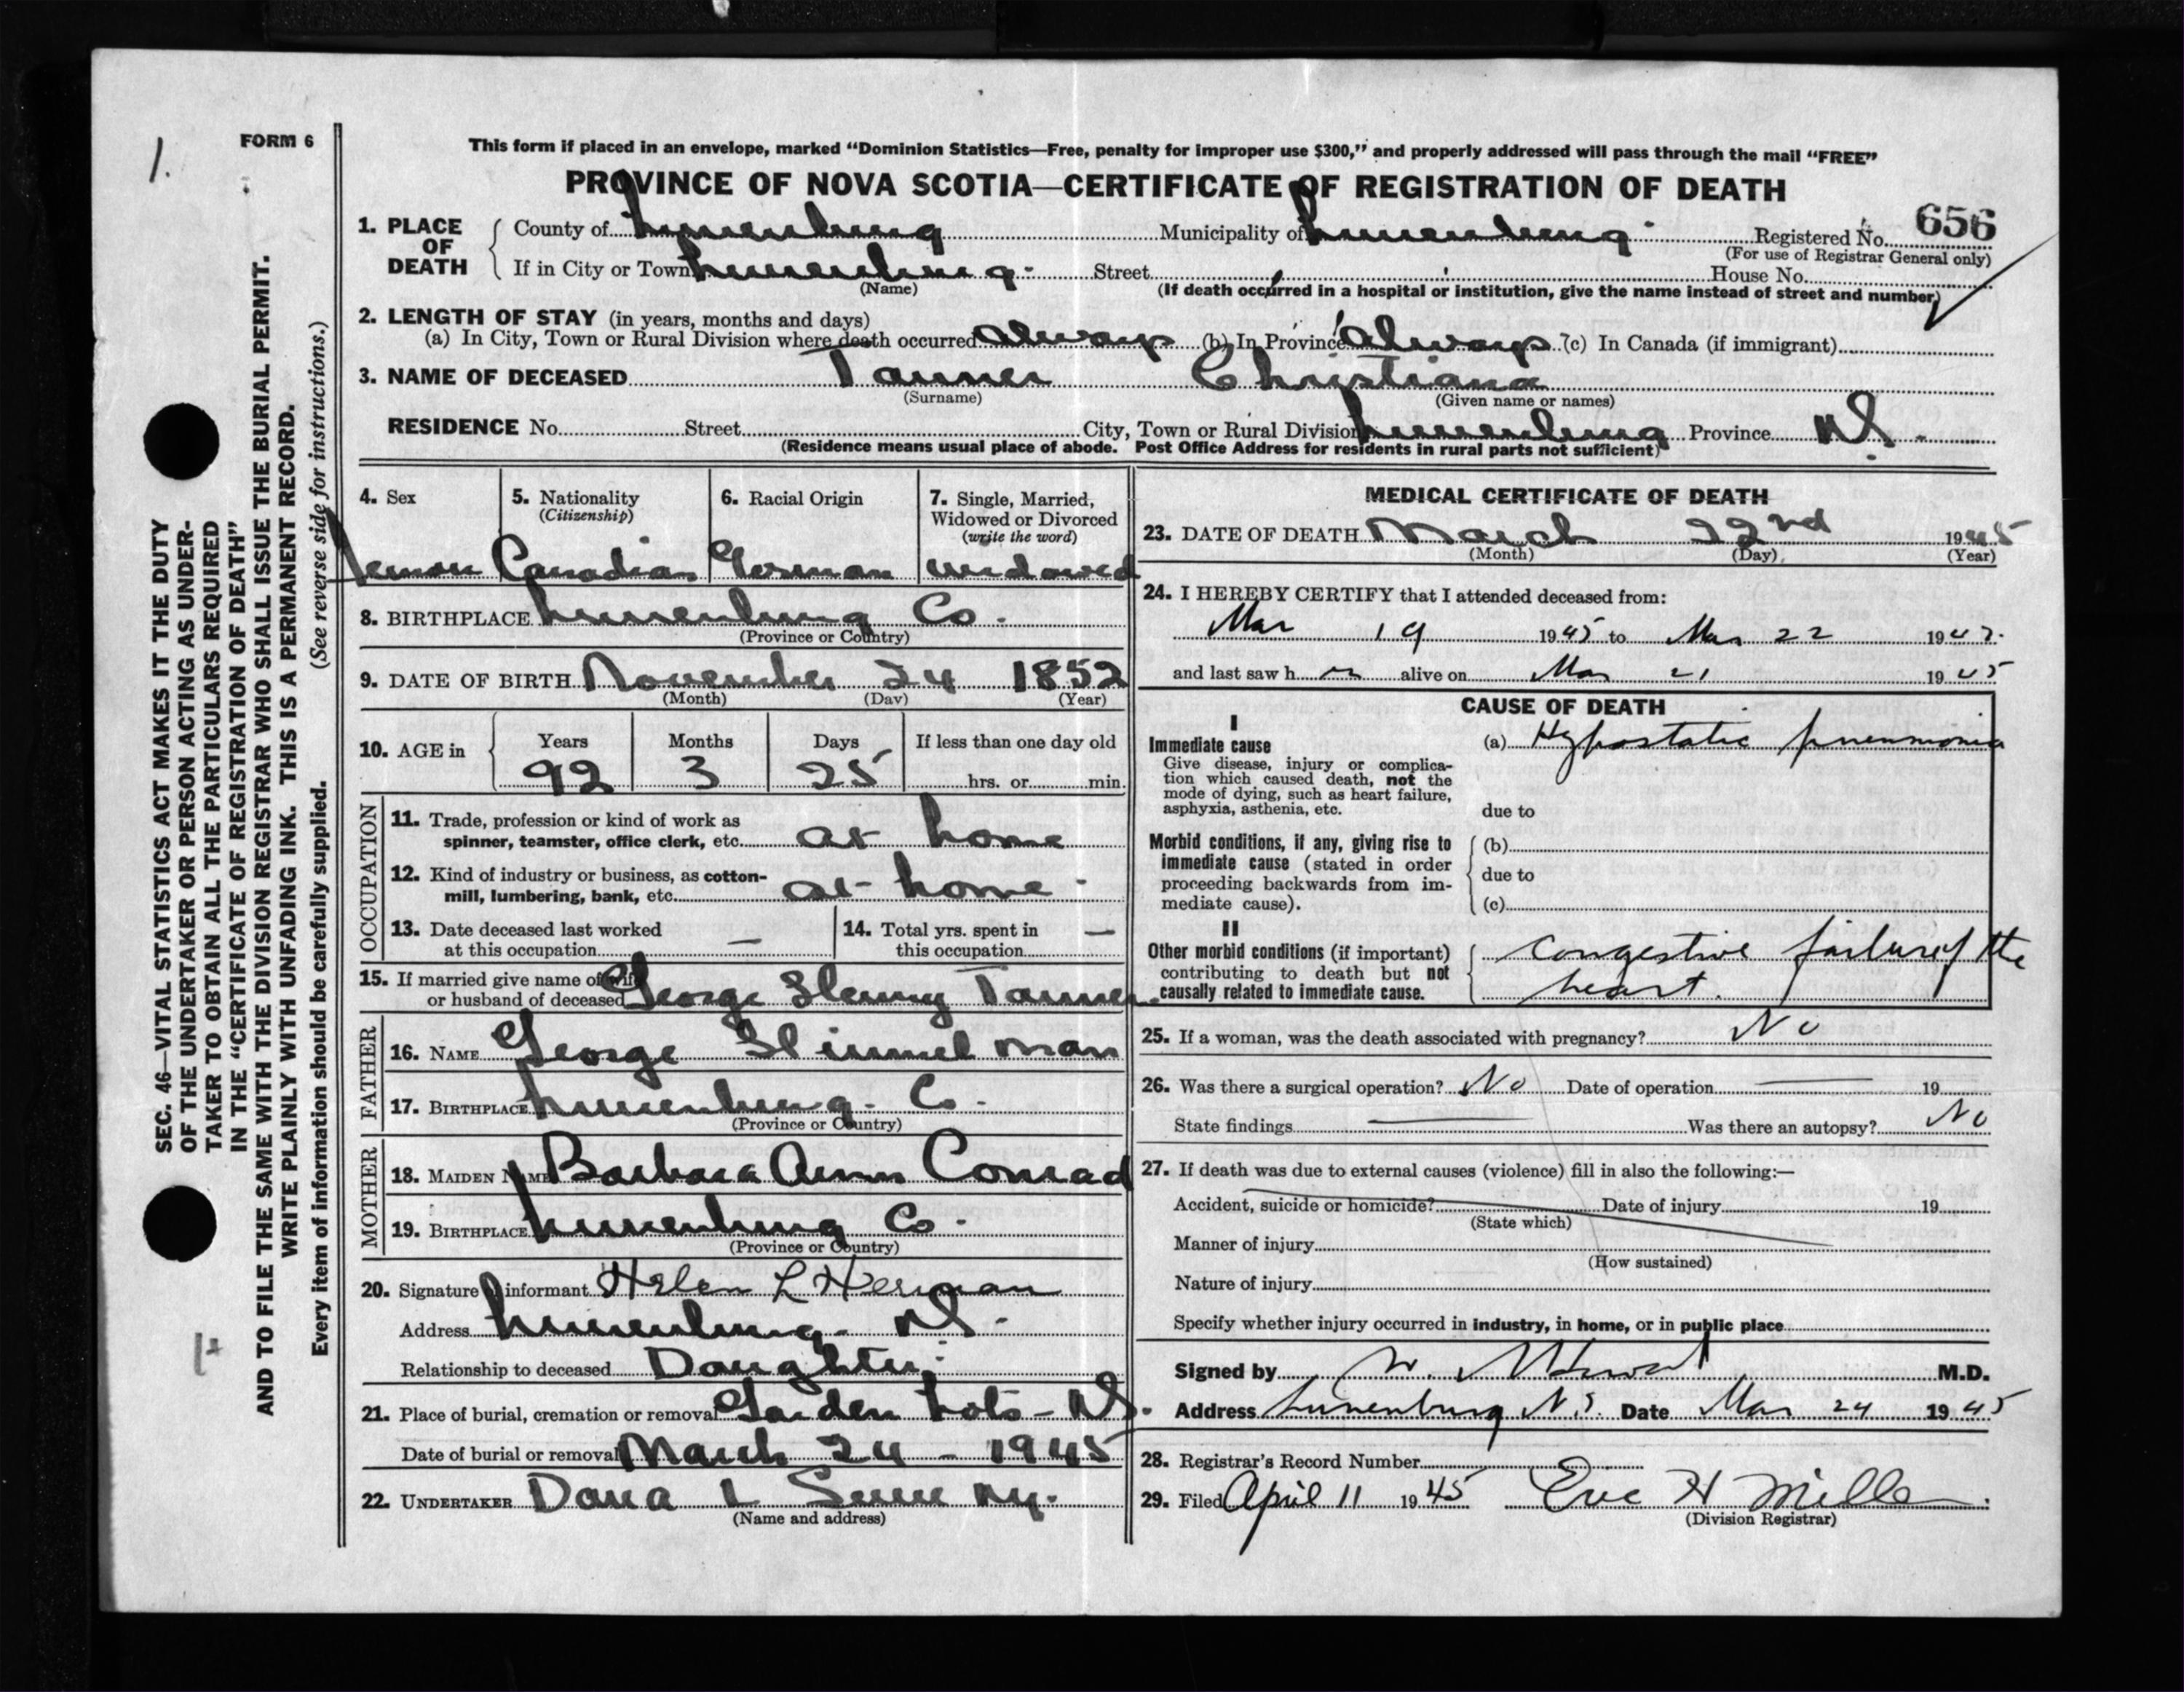 1.
FORM 6
This form if placed in an envelope, marked "Dominion Statistics—Free, penalty for improper use $300," and properly addressed will pass through the mail "FREE"
PROVINCE OF NOVA SCOTIA—CERTIFICATE OF REGISTRATION OF DEATH
1. PLACE OF DEATH County of Lunenburg Municipality of Lunenburg Registered No. 656
(For use of Registrar General only)
If in City or Town Lunenburg Street House No.
(Name) (If death occurred in a hospital or institution, give the name instead of street and number)
2. LENGTH OF STAY (in years, months and days)
(a) In City, Town or Rural Division where death occurred Always (b) In Province Always (c) In Canada (if immigrant)
3. NAME OF DECEASED Tanner Christiana
(Surname) (Given name or names)
RESIDENCE No. Street City, Town or Rural Division Lunenburg Province N.S.
(Residence means usual place of abode. Post Office Address for residents in rural parts not sufficient)
4. Sex 5. Nationality 6. Racial Origin 7. Single, Married,
(Citizenship) Widowed or Divorced
(write the word)
Canadian German Widowed
8. BIRTHPLACE Lunenburg Co.
(Province or Country)
9. DATE OF BIRTH November 24 1852
(Month) (Day) (Year)
10. AGE in Years Months Days If less than one day old
92 3 25 hrs. or min.
OCCUPATION
11. Trade, profession or kind of work as
spinner, teamster, office clerk, etc. at home
12. Kind of industry or business, as cotton-
mill, lumbering, bank, etc. at home
13. Date deceased last worked 14. Total yrs. spent in
at this occupation — this occupation —
15. If married give name of wife
or husband of deceased George Henry Tanner
FATHER
16. NAME George Himmelman
17. BIRTHPLACE Lunenburg Co.
(Province or Country)
MOTHER
18. MAIDEN NAME Barbara Ann Conrad
19. BIRTHPLACE Lunenburg Co.
(Province or Country)
20. Signature of informant Helen L Herman
Address Lunenburg N.S.
Relationship to deceased Daughter
21. Place of burial, cremation or removal Garden Lots - N.S.
Date of burial or removal March 24 - 1945
22. UNDERTAKER Dana L
(Name and address)
MEDICAL CERTIFICATE OF DEATH
23. DATE OF DEATH March 22nd 1945
(Month) (Day) (Year)
24. I HEREBY CERTIFY that I attended deceased from:
Mar 19 1945 to Mar 22 194
and last saw h er alive on Mar 21 1945
CAUSE OF DEATH
I
Immediate cause (a) Hypostatic pneumonia
Give disease, injury or complica-
tion which caused death, not the
mode of dying, such as heart failure,
asphyxia, asthenia, etc. due to
Morbid conditions, if any, giving rise to (b)
immediate cause (stated in order
proceeding backwards from im- due to
mediate cause). (c)
II
Other morbid conditions (if important) congestive failure of the
contributing to death but not
causally related to immediate cause. heart.
25. If a woman, was the death associated with pregnancy? No
26. Was there a surgical operation? No Date of operation — 19
State findings — Was there an autopsy? No
27. If death was due to external causes (violence) fill in also the following:—
Accident, suicide or homicide? Date of injury 19
(State which)
Manner of injury
(How sustained)
Nature of injury
Specify whether injury occurred in industry, in home, or in public place
Signed by M.D.
Address Lunenburg N.S. Date Mar 24 1945
28. Registrar's Record Number
29. Filed April 11 1945 H Miller
(Division Registrar)
SEC. 46—VITAL STATISTICS ACT MAKES IT THE DUTY
OF THE UNDERTAKER OR PERSON ACTING AS UNDER-
TAKER TO OBTAIN ALL THE PARTICULARS REQUIRED
IN THE "CERTIFICATE OF REGISTRATION OF DEATH"
AND TO FILE THE SAME WITH THE DIVISION REGISTRAR WHO SHALL ISSUE THE BURIAL PERMIT.
WRITE PLAINLY WITH UNFADING INK. THIS IS A PERMANENT RECORD.
Every item of information should be carefully supplied. (See reverse side for instructions.)